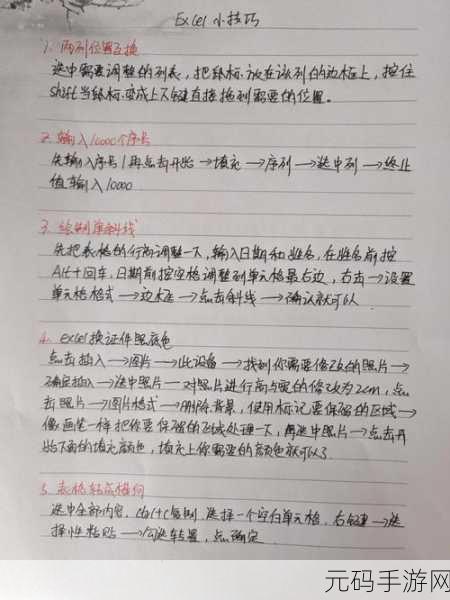 Excel 小技巧
1. 两列位置互换
选中需要调整的列表，把鼠标放在该列的边框上，按住
shift当鼠标变成上下键直接拖到需要的位置。
2. 输入10000个序号
先输入序号1再点击开始→填充→序列→选中列→终止
值输入10000
3. 绘制单斜线
先把表格的行高调整一下，输入日期和姓名，在姓名前按
Alt+回车，日期前按空格调整到单元格最右边，右击→设置
单元格格式→边框→点击斜线→确认就可以
4. excel换证件照底色
点击插入→图片→此设备→找到你需要修改的照片→
确定插入→选中照片→对照片进行高与宽的修改为2cm，点
击照片→图片格式→删除背景，使用标记要保留的区域→
像画笔一样把你要保留的区域处理一下，再选中照片→点击开
始下面的填充颜色，填充上你需要的颜色就可以了
5. 表格转成横向
选中全部内容，ctrl+c复制 选择一个空白单元格，右键→选
择性粘贴→勾选转置，点击确定
元码手游网